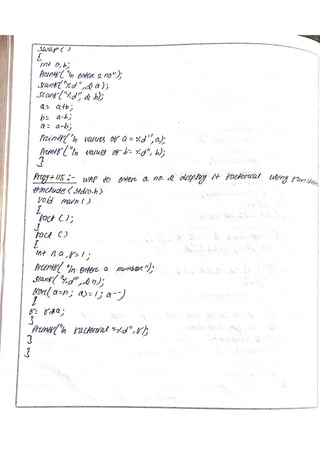 swap ()
{
int a, b;
printf("\n enter 2 no");
scanf("%d", &a);
scanf("%d", &b);
a = a+b;
b = a-b;
a = a-b;
printf("\n values of a = %d", a);
printf("\n values of b = %d", b);
}
Prog+115 :- WAP to enter a no. & display it factorial using function
#include<stdio.h>
void main ()
{
fact ();
}
fact ()
{
int n, a, r=1;
printf("\n enter a number");
scanf("%d", &n);
for(a=n; a>=1; a--)
{
r = r*a;
}
printf("\n factorial = %d", r);
}
}